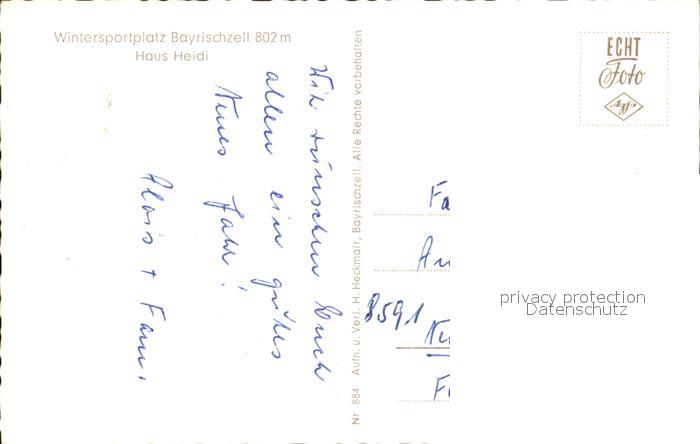 Wintersportplatz Bayrischzell 802 m
Haus Heidi
Wir wünschen Euch
allen ein gutes
Neues Jahr!
Alois + Fam.
Nr 884 Aufn. u. Verl. H. Heckmair, Bayrischzell. Alle Rechte vorbehalten
ECHT
Foto
Agfa
Fa
8591
privacy protection
Datenschutz